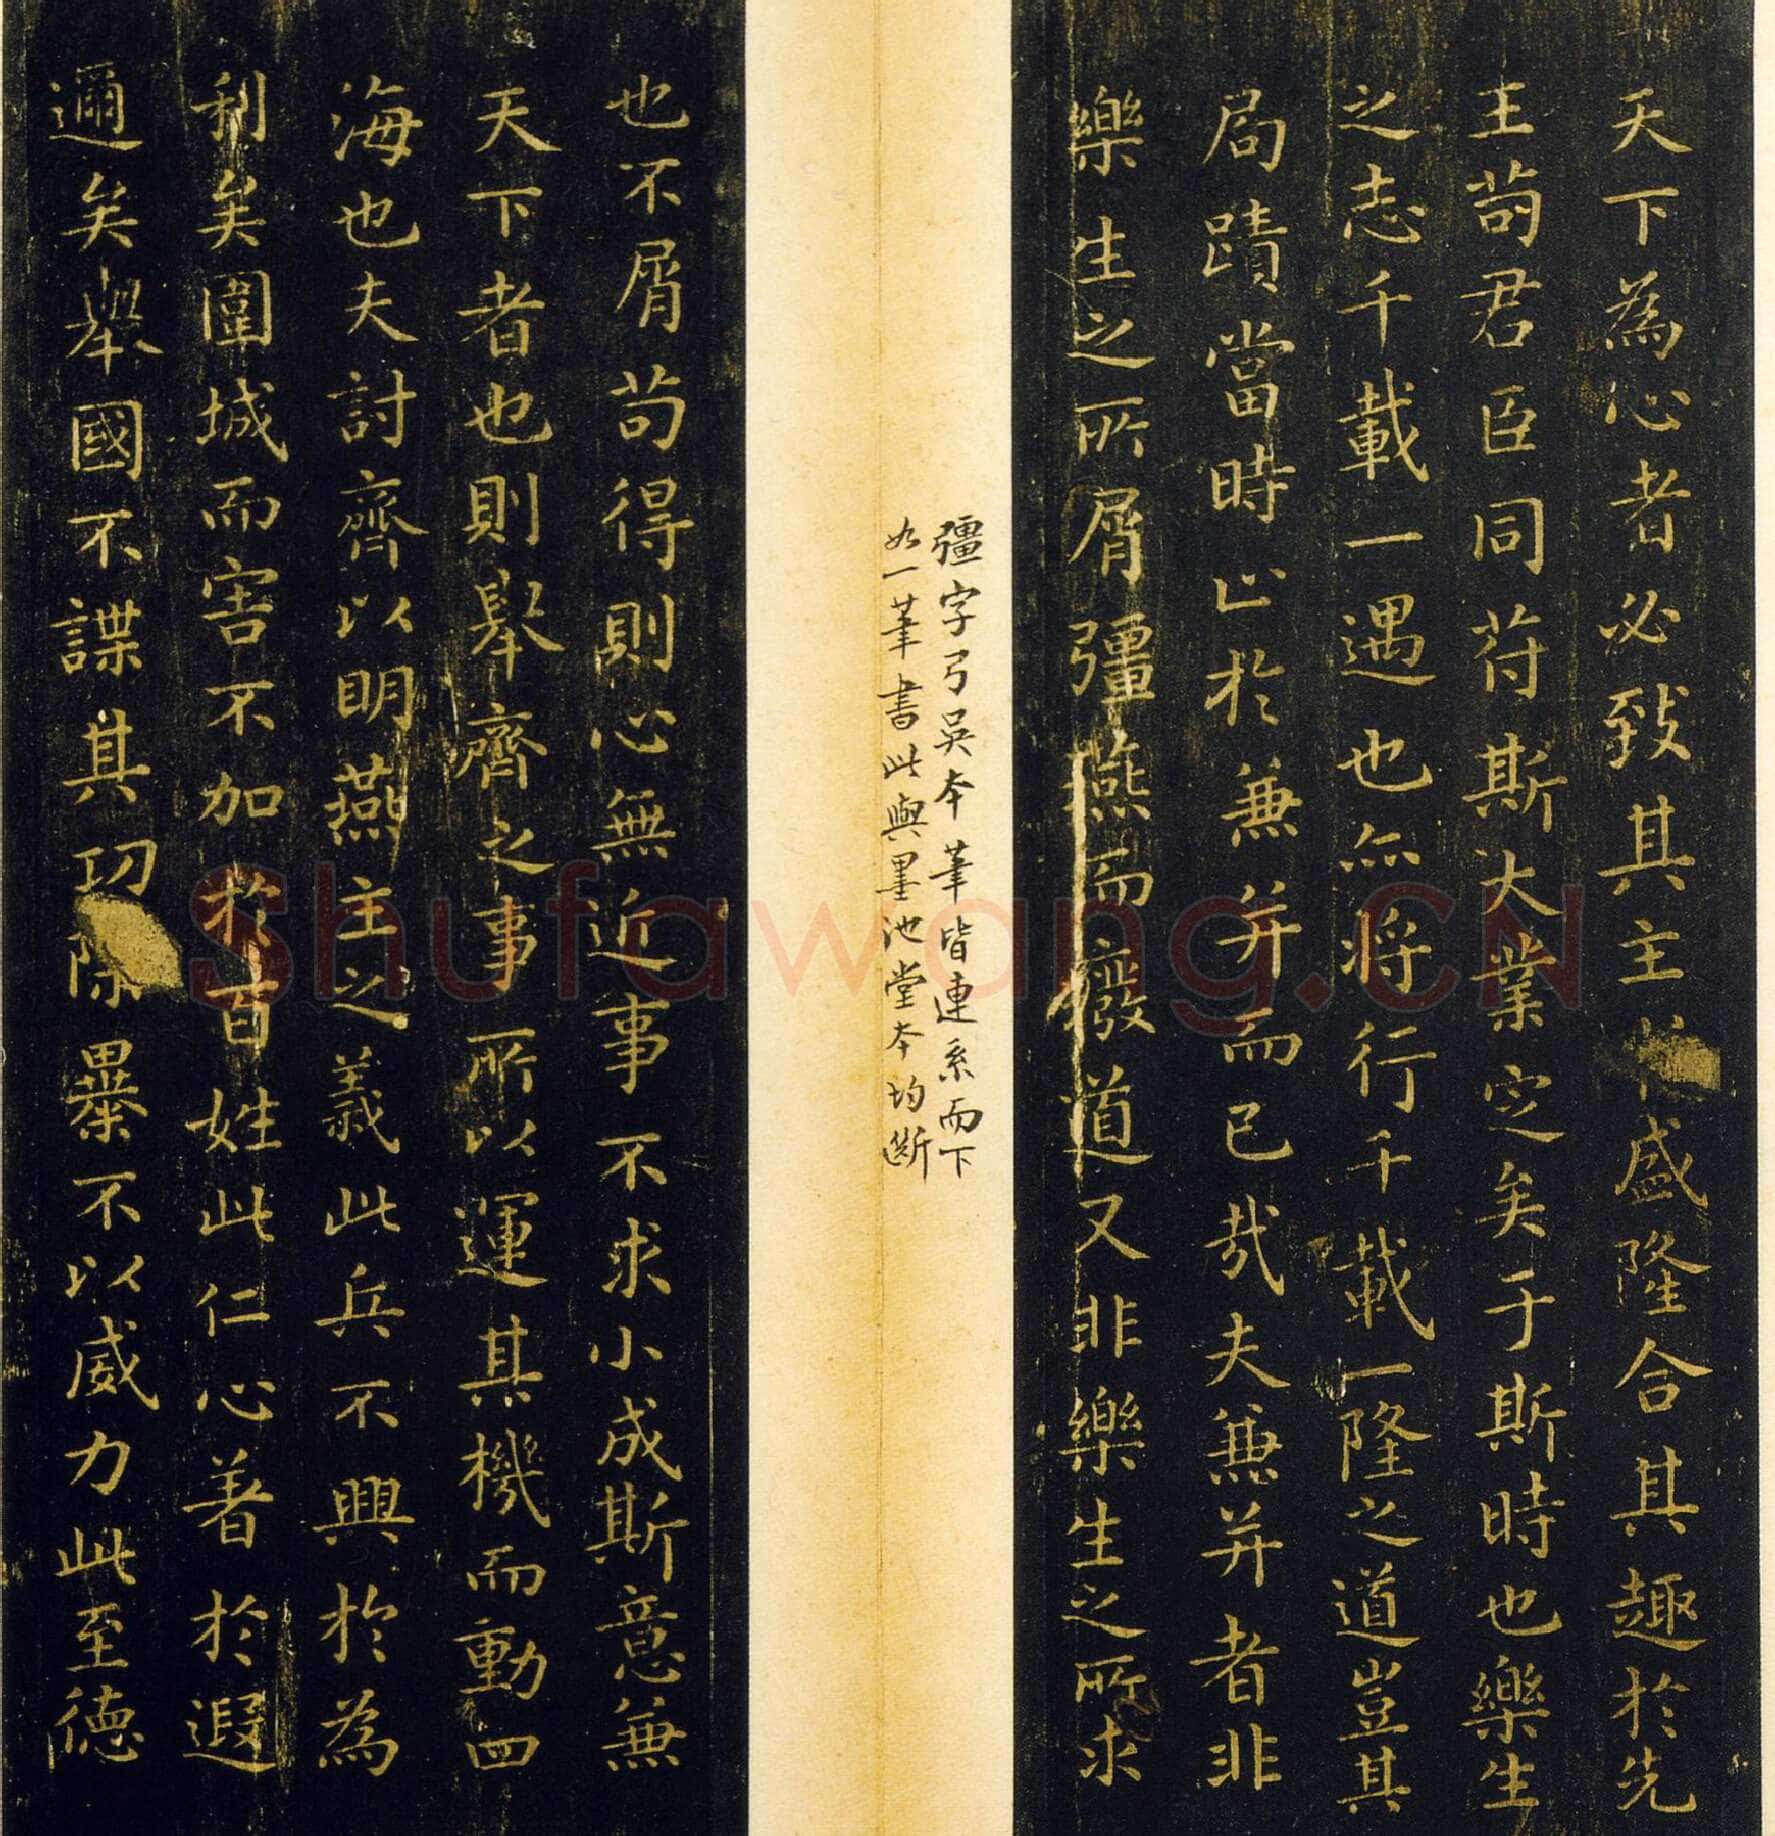 天下為心者必致其主於盛隆合其趣於先
王苟君臣同苻斯大業定矣于斯時也樂生
之志千載一遇也亦將行千載一隆之道豈其
局蹟當時止於兼并而已哉夫兼并者非
樂生之所屑彊燕而廢道又非樂生之所求
彊字弓吳本筆皆連系而下
如一筆書此與墨池堂本均斷
也不屑苟得則心無近事不求小成斯意兼
天下者也則舉齊之事所以運其機而動四
海也夫討齊以明燕主之義此兵不興於為
利矣圍城而害不加於百姓此仁心著於遐
邇矣舉國不謀其功除暴不以威力此至德
Shufawang.CN